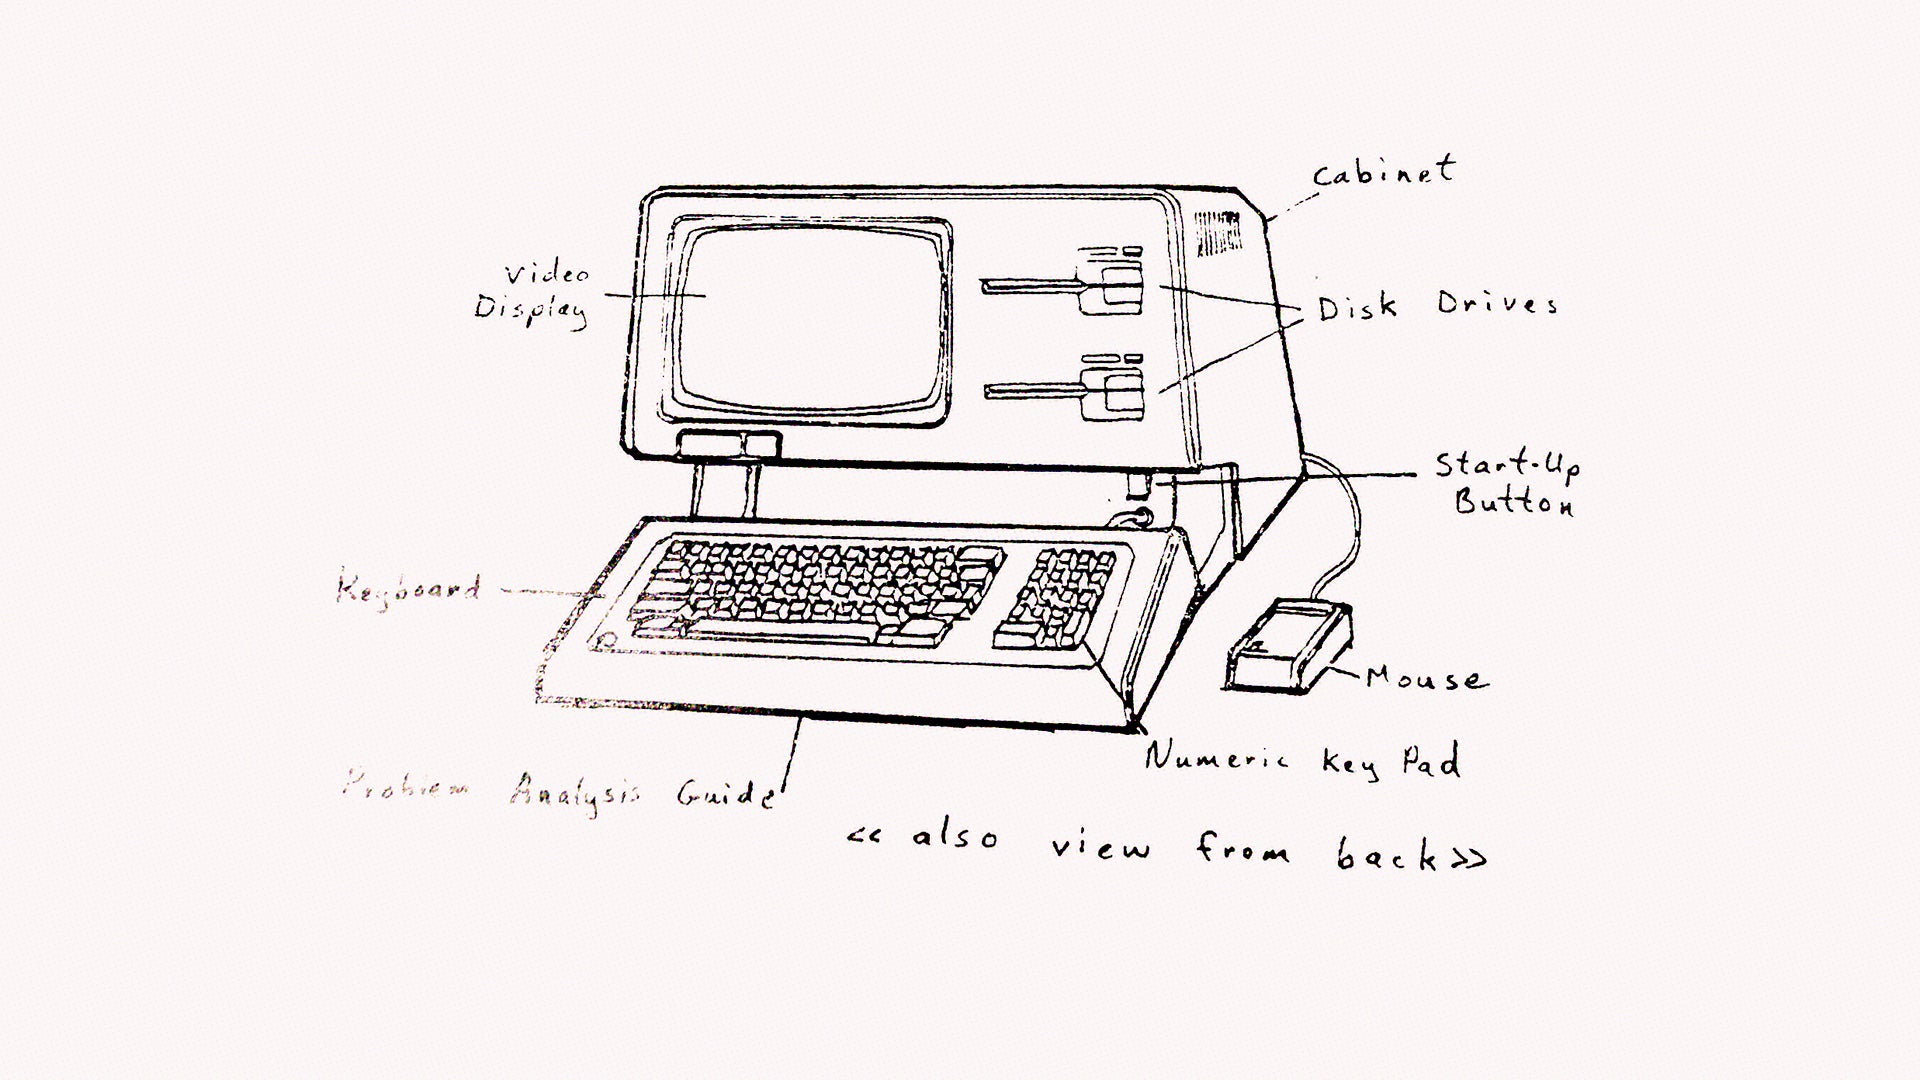 Cabinet
Video
Display
Disk Drives
Start-Up
Button
Keyboard
Mouse
Numeric Key Pad
Problem Analysis Guide
<< also view from back >>